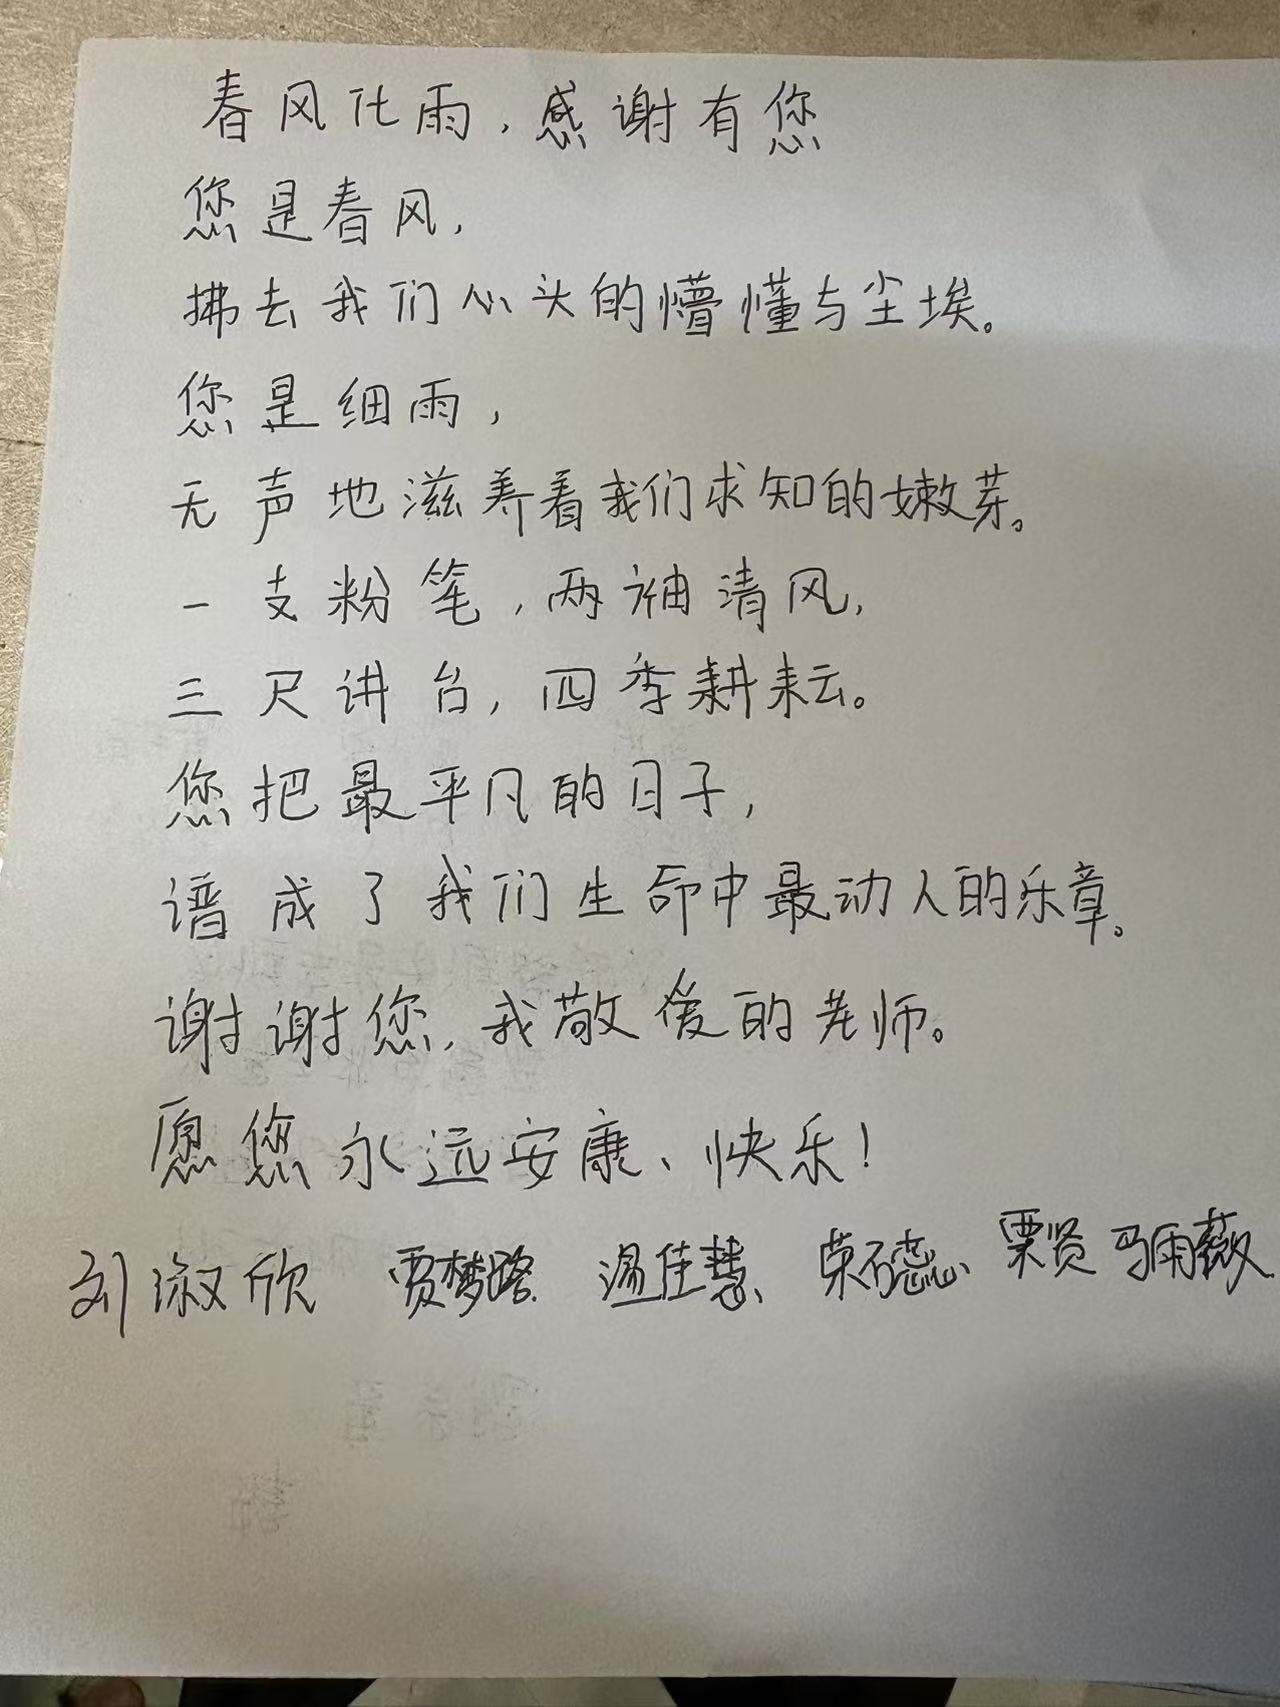 春风化雨，感谢有您
您是春风，
拂去我们心头的懵懂与尘埃。
您是细雨，
无声地滋养着我们求知的嫩芽。
一支粉笔，两袖清风，
三尺讲台，四季耕耘。
您把最平凡的日子，
谱成了我们生命中最动人的乐章。
谢谢您，我敬爱的老师。
愿您永远安康、快乐！
刘淑欣 贾梦璐 温佳慧 荣 栗贤 马雨薇